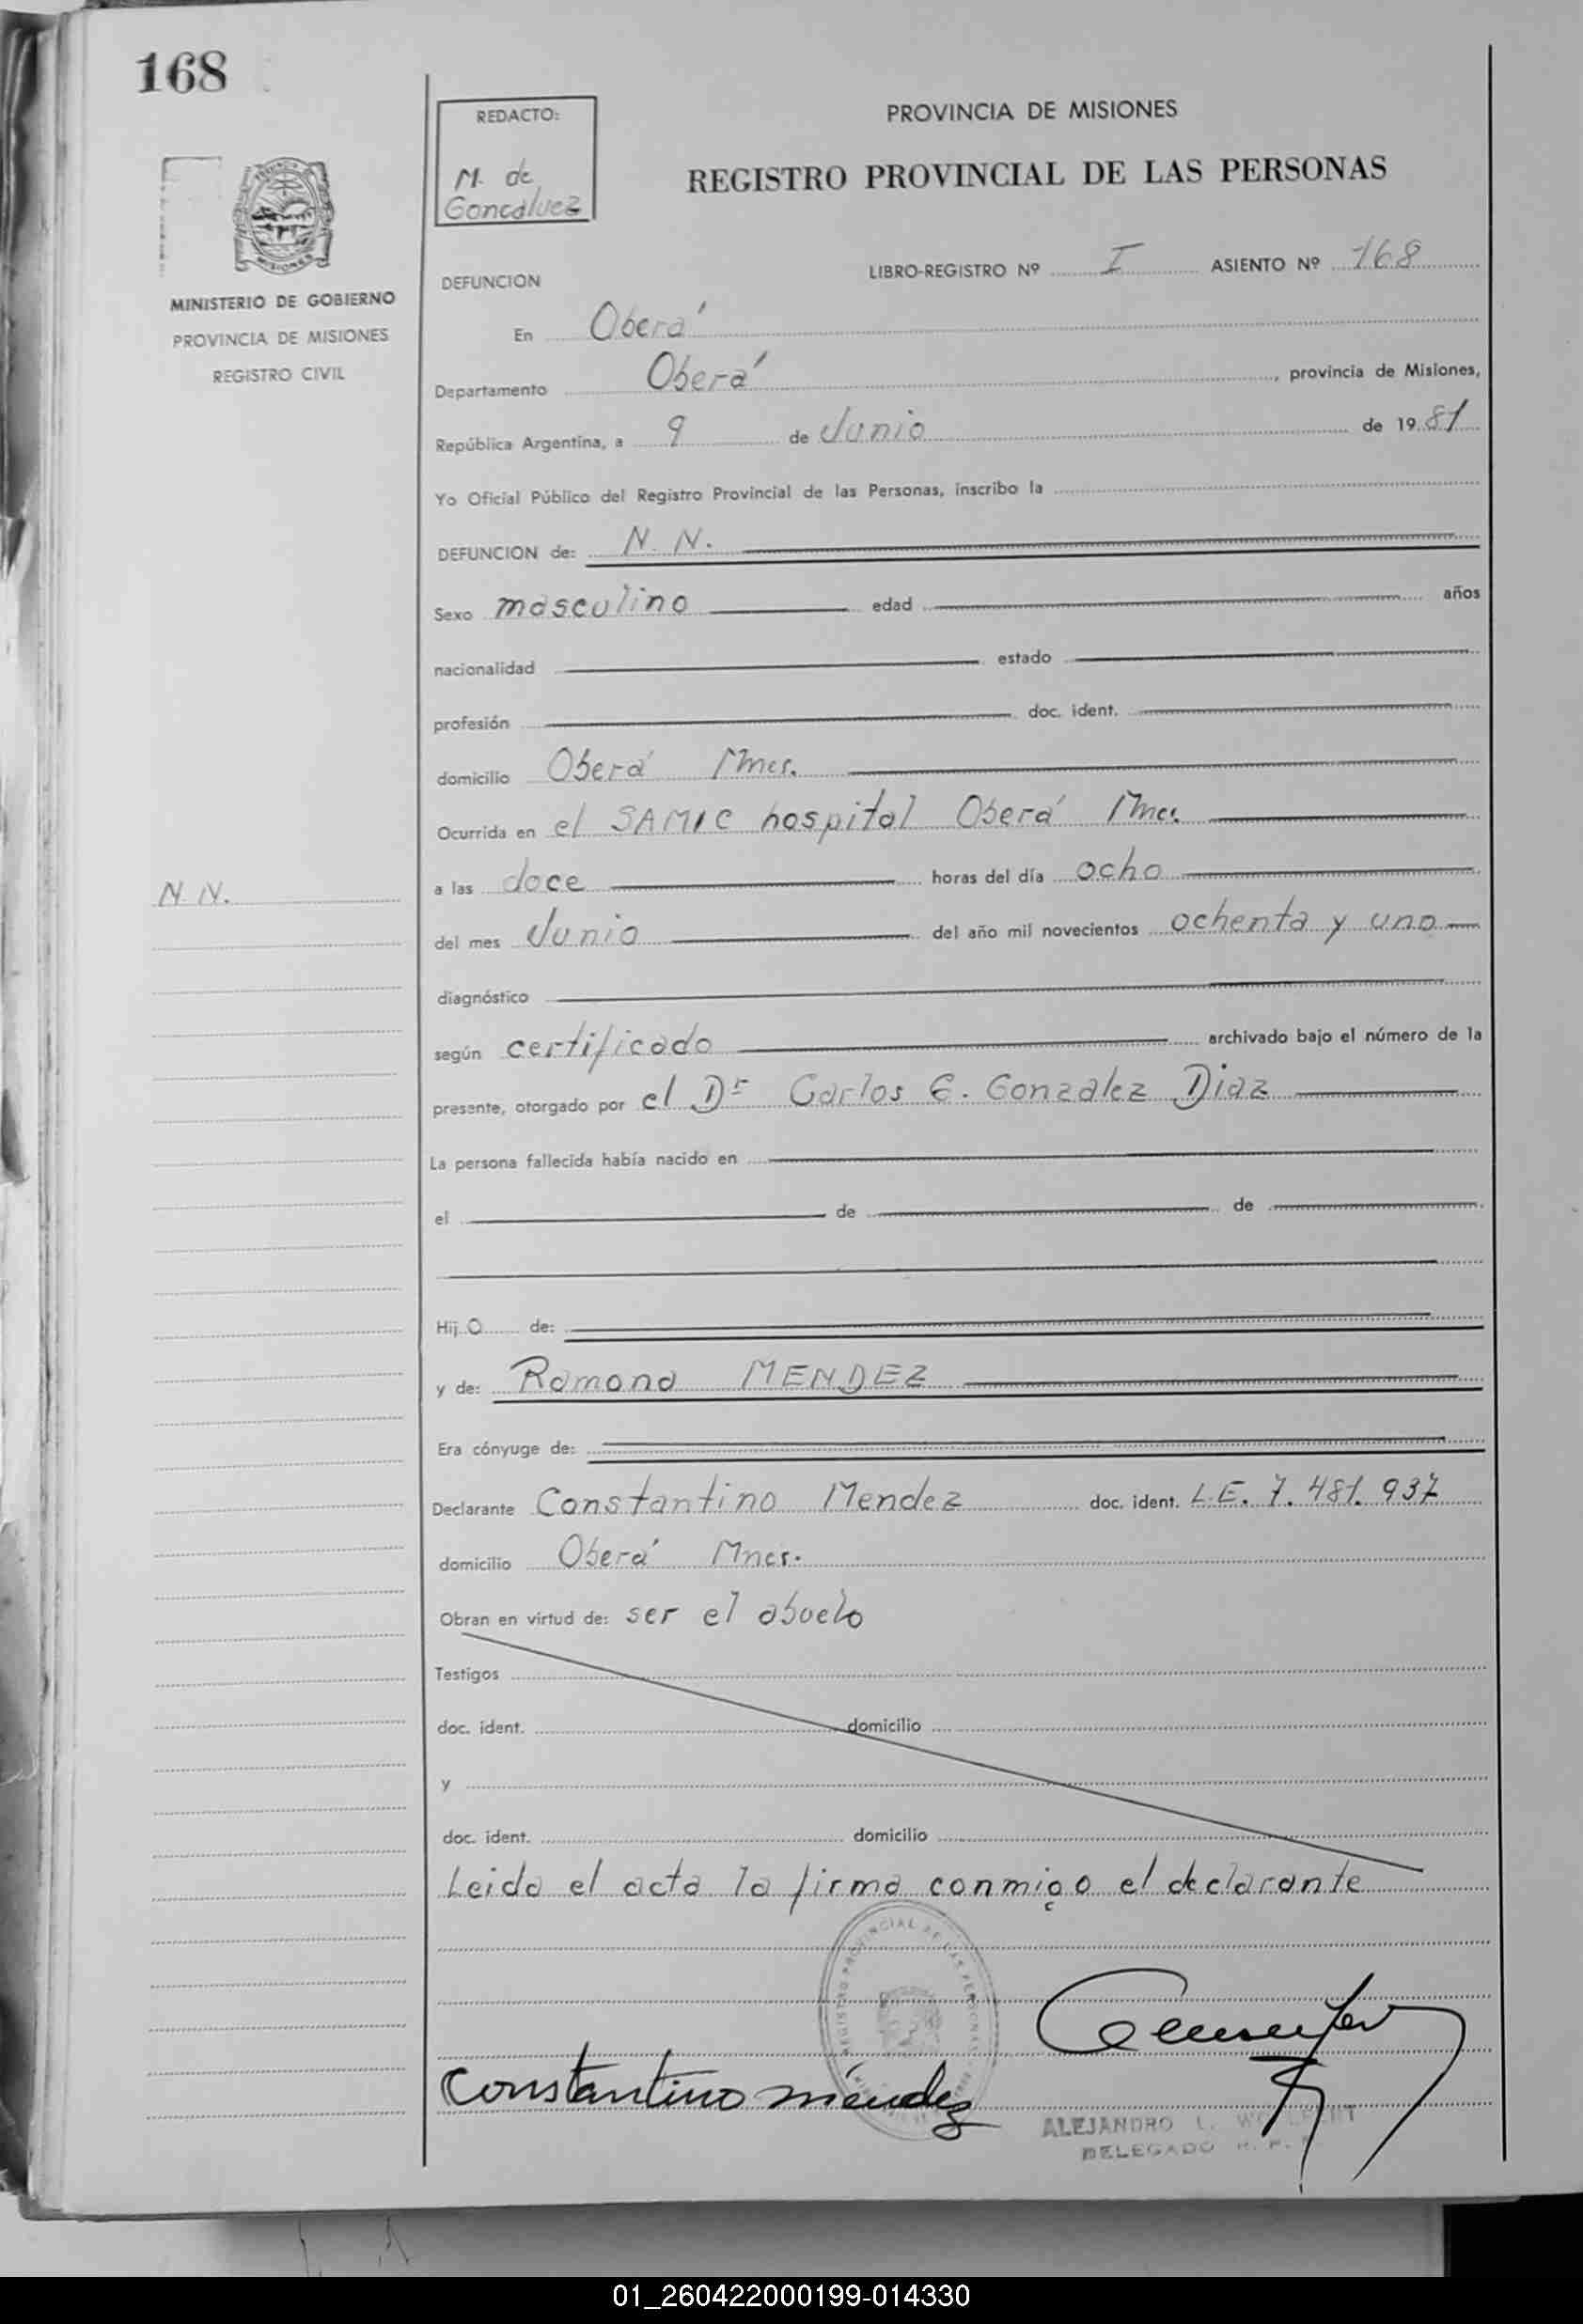 168
REDACTO:
M. de
Goncalvez
PROVINCIA DE MISIONES
REGISTRO PROVINCIAL DE LAS PERSONAS
MISIONES
MINISTERIO DE GOBIERNO
PROVINCIA DE MISIONES
REGISTRO CIVIL
DEFUNCION
LIBRO-REGISTRO Nº I ASIENTO Nº 168
En Oberá
Departamento Oberá, provincia de Misiones,
República Argentina, a 9 de Junio de 1981
Yo Oficial Público del Registro Provincial de las Personas, inscribo la
DEFUNCION de: N. N.
Sexo masculino edad años
nacionalidad estado
profesión doc. ident.
domicilio Oberá Mnes.
Ocurrida en el SAMIC hospital Oberá Mnes.
N. N.
a las doce horas del día ocho
del mes Junio del año mil novecientos ochenta y uno
diagnóstico
según certificado archivado bajo el número de la
presente, otorgado por el Dr Carlos E. Gonzalez Diaz
La persona fallecida había nacido en
el de de
Hij O de:
y de: Ramona MENDEZ
Era cónyuge de:
Declarante Constantino Mendez doc. ident. L.E. 7.481.937
domicilio Oberá Mnes.
Obran en virtud de: ser el abuelo
Testigos
doc. ident. domicilio
y
doc. ident. domicilio
Leida el acta la firma conmigo el declarante
REGISTRO PROVINCIAL DE LAS PERSONAS
Constantino méndez
ALEJANDRO L.
DELEGADO R. P.
01_260422000199-014330